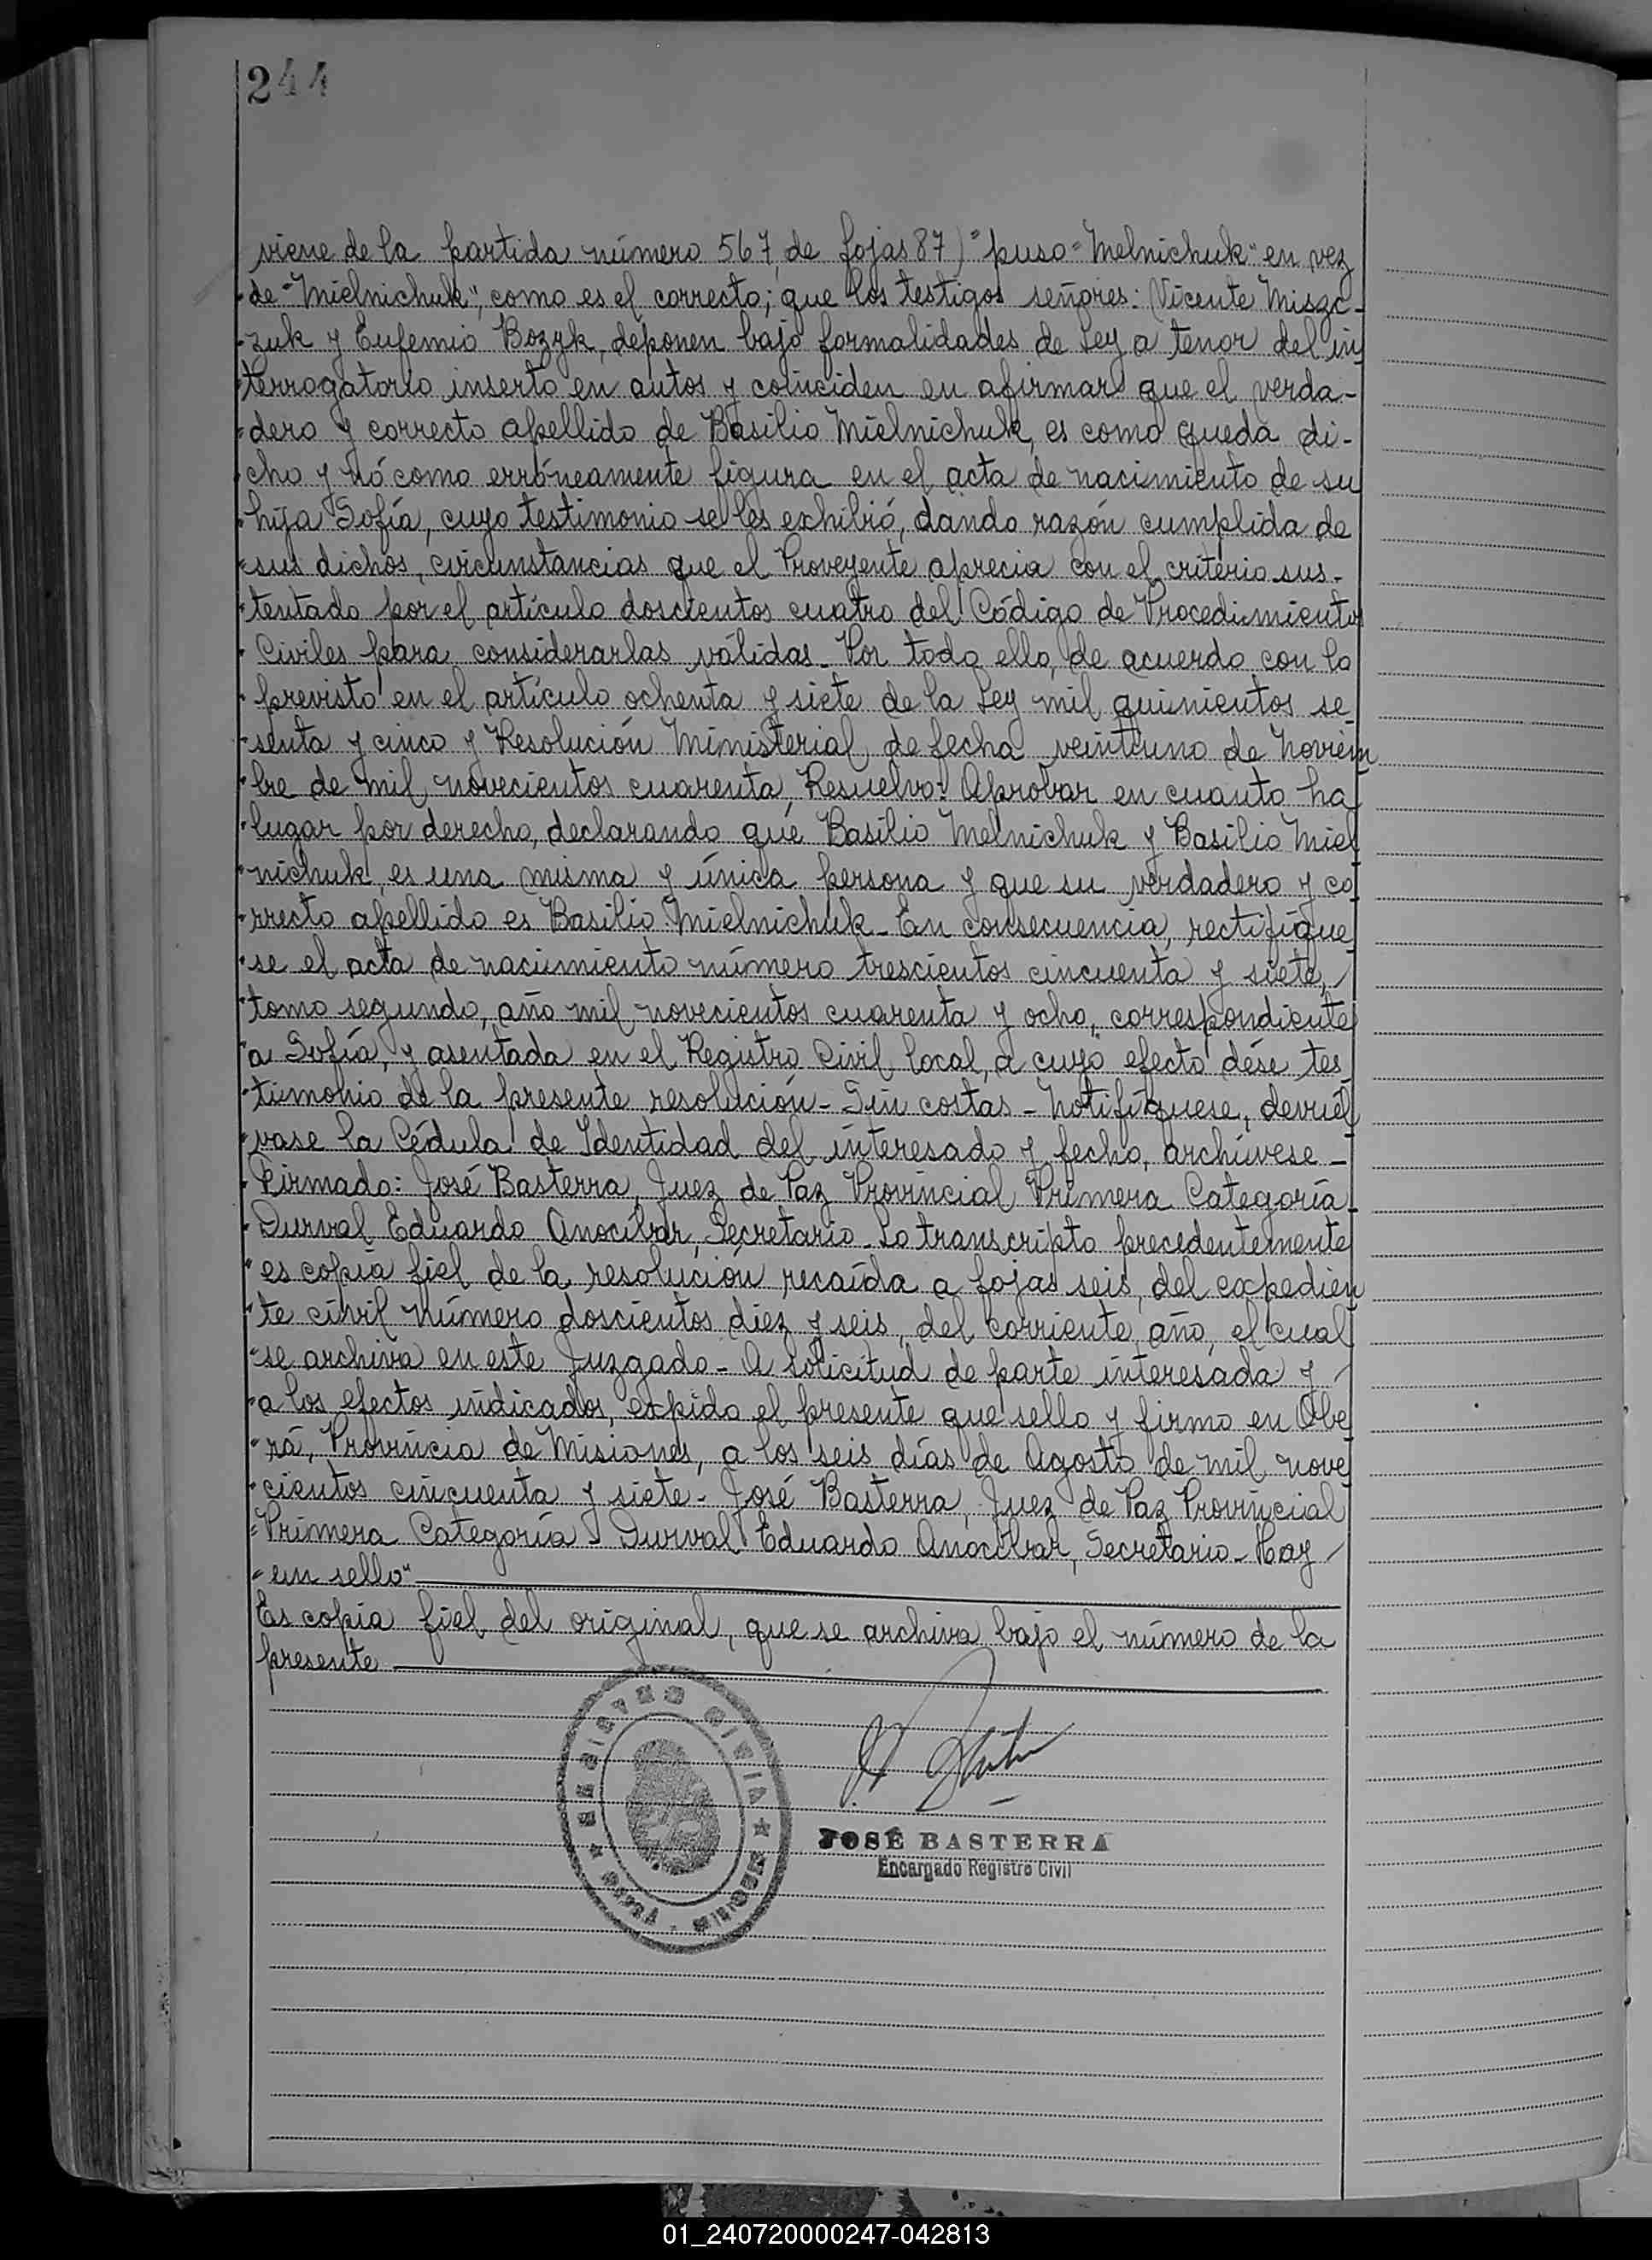 244
viene de la partida número 567, de fojas 87) "puso "Melnichuk" en vez
"de "Mielnichuk", como es el correcto; que los testigos señores: Vicente Miszc-
"zuk y Eufemio Bozyk, deponen bajo formalidades de Ley a tenor del in
"terrogatorio inserto en autos y coinciden en afirmar que el verda-
"dero y correcto apellido de Basilio Mielnichuk, es como queda di-
"cho y nó como erróneamente figura en el acta de nacimiento de su
"hija Sofía, cuyo testimonio se les exhibió, dando razón cumplida de
"sus dichos, circunstancias que el Proveyente aprecia con el criterio sus-
"tentado por el artículo doscientos cuatro del Código de Procedimientos
"Civiles para considerarlas válidas - Por todo ello, de acuerdo con lo
"previsto en el artículo ochenta y siete de la Ley mil quinientos se-
"senta y cinco y Resolución Ministerial de fecha veintiuno de Noviem
"bre de mil novecientos cuarenta, Resuelvo: Aprobar en cuanto ha
"lugar por derecho, declarando que Basilio Melnichuk y Basilio Miel
"nichuk, es una misma y única persona y que su verdadero y co
"rrecto apellido es Basilio Mielnichuk - En consecuencia, rectifíque
"se el acta de nacimiento número trescientos cincuenta y siete,
"tomo segundo, año mil novecientos cuarenta y ocho, correspondiente
"a Sofía, y asentada en el Registro Civil local, a cuyo efecto dése tes
"timonio de la presente resolución - Sin costas - Notifíquese, devuél
"vase la Cédula de Identidad del interesado y fecho, archívese -
"Firmado: José Basterra, Juez de Paz Provincial Primera Categoría -
"Durval Eduardo Anocíbar, Secretario - Lo transcripto precedentemente
"es copia fiel de la resolución recaída a fojas seis, del expedien
"te civil número doscientos diez y seis, del corriente año, el cual
"se archiva en este Juzgado - A solicitud de parte interesada y
"a los efectos indicados, expido el presente que sello y firmo en Obe
"rá, Provincia de Misiones, a los seis días de Agosto de mil nove
"cientos cincuenta y siete - José Basterra, Juez de Paz Provincial
"Primera Categoría - Durval Eduardo Anocíbar, Secretario - Hay
"un sello"
Es copia fiel del original, que se archiva bajo el número de la
presente
JOSÉ BASTERRA
Encargado Registro Civil
01_240720000247-042813